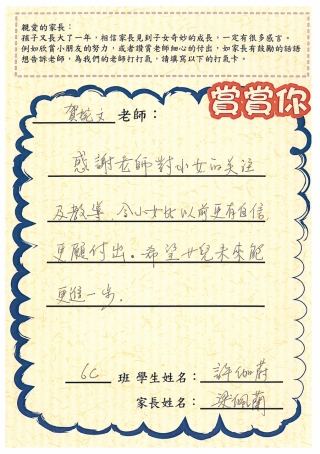 親愛的家長：
孩子又長大了一年，相信家長見到子女奇妙的成長，一定有很多感言。
例如欣賞小朋友的努力，或者讚賞老師細心的付出，如家長有鼓勵的話語
想告訴老師，為我們的老師打打氣，請填寫以下的打氣卡。
賞賞你
賀婉文 老師：
感謝老師對小女的关注
及教導，令小女比以前更有自信，
更願付出。希望女兒未來能
更進一步.
6C 班 學生姓名：許伽蔚
家長姓名：梁佩蘭